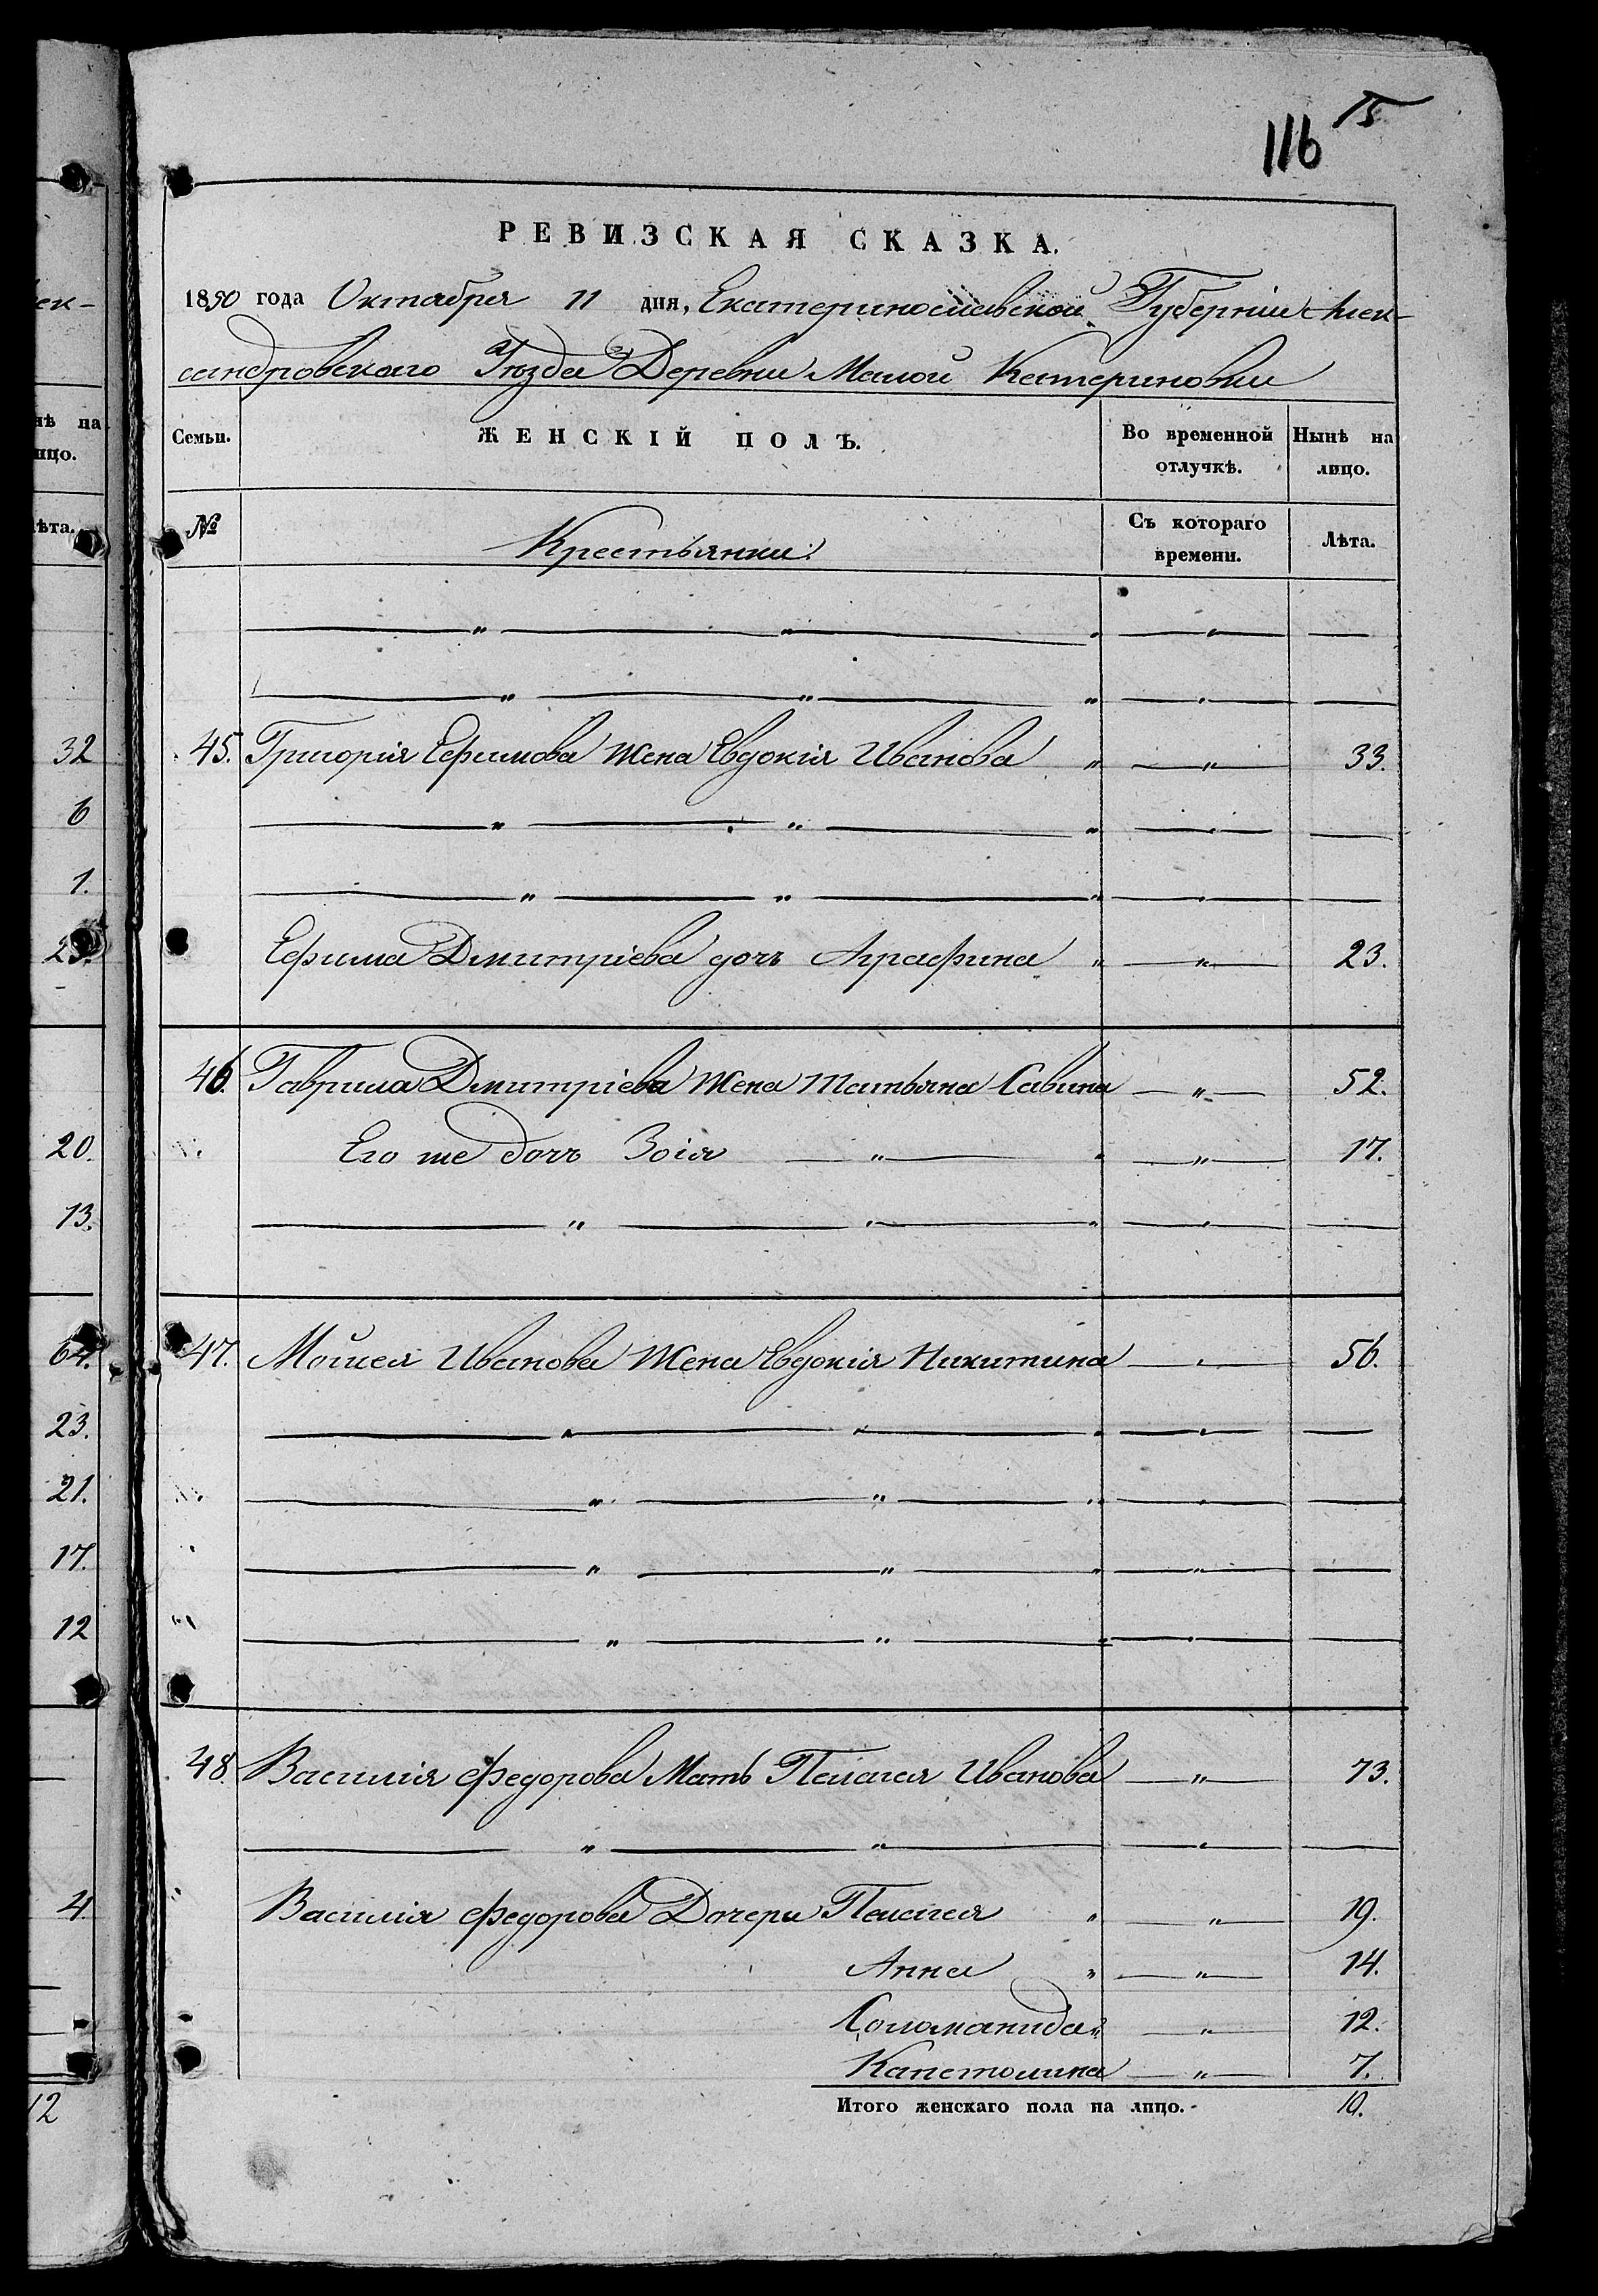 15
116
РЕВИЗСКАЯ СКАЗКА.
1850 года Октября 11 дня, Екатеринославской Губерніи Алек-
сандровскаго Уѣзда Деревни Малой Катериновки
Семьи. ЖЕНСКІЙ ПОЛЪ. Во временной отлучкѣ. Нынѣ на лицо.
№ Крестьянки. Съ котораго времени. Лѣта.
— „ — „ — „ — „ — —
— „ — „ — „ — „ — —
45. Григорія Ефимова жена Евдокія Иванова „ — „ — 33.
— „ — „ — „ — „ — —
— „ — „ — „ — „ — —
Ефима Дмитріева дочь Аграфина „ — „ — 23.
46. Гаврила Дмитріева жена Татьяна Савина — „ — 52.
Его же дочь Зоія — „ — „ — „ — 17.
— „ — „ — „ — „ — —
47. Мойсея Иванова жена Евдокія Никитина — „ — 56.
— „ — „ — „ — „ — —
— „ — „ — „ — „ — —
— „ — „ — „ — „ — —
— „ — „ — „ — „ — —
48. Василія Федорова Мать Пелагея Иванова — „ — 73.
— „ — „ — „ — —
Василія Федорова Дочери Пелагея „ — „ — 19.
Анна „ — „ — 14.
Соломанида „ — „ — 12.
Капетолина — „ — 7.
Итого женскаго пола на лицо. 10.
ек-
нѣ на
ицо.
ѣта.
32
6
1.
20.
13.
64.
23.
21.
17.
12
4
12